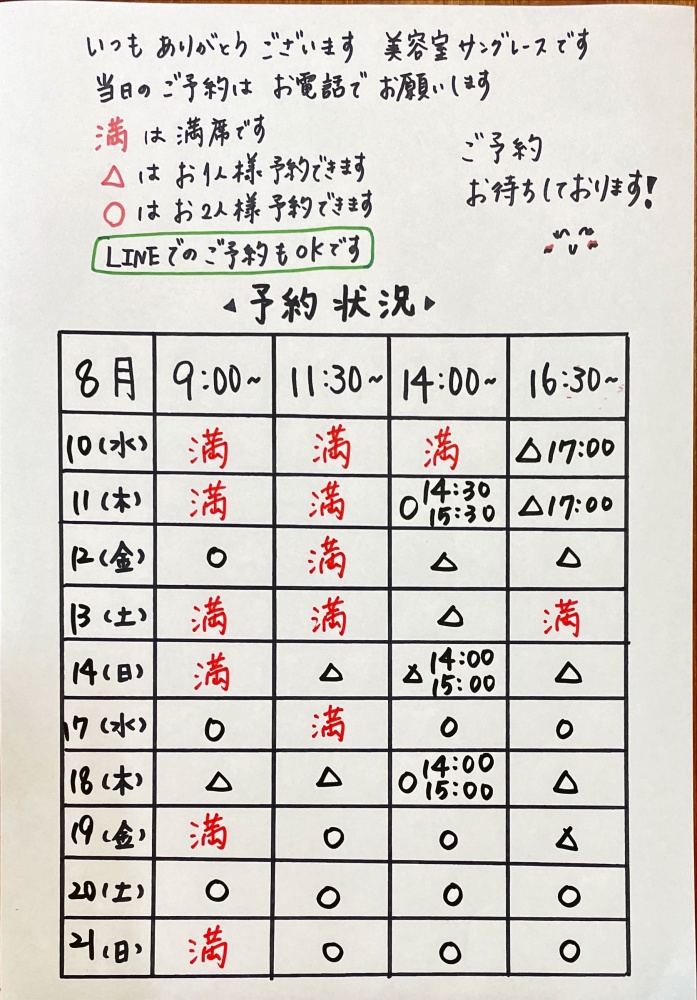 いつも ありがとう ございます 美容室 サングレースです
当日の ご予約は お電話で お願いします
満 は 満席です
△ は お1人様 予約できます
○ は お2人様 予約できます
LINEでの ご予約も OKです
ご予約
お待ちしております!
◀ 予約 状況 ▶
8月 9:00~ 11:30~ 14:00~ 16:30~
10(水) 満 満 満 △17:00
11(木) 満 満 ○14:30 15:30 △17:00
12(金) ○ 満 △ △
13(土) 満 満 △ 満
14(日) 満 △ △14:00 15:00 △
17(水) ○ 満 ○ ○
18(木) △ △ ○14:00 15:00 △
19(金) 満 ○ ○ △
20(土) ○ ○ ○ ○
21(日) 満 ○ ○ ○